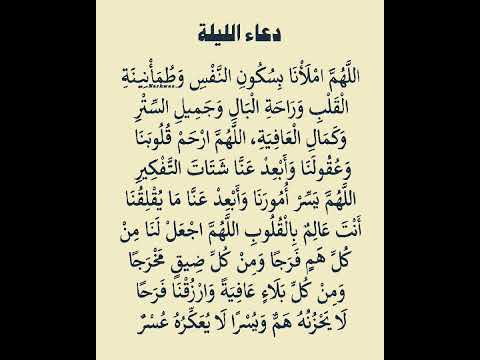 دعاء الليلة
اللَّهُمَّ امْلَأْنَا بِسُكُونِ النَّفْسِ وَطُمَأْنِينَةِ
الْقَلْبِ وَرَاحَةِ الْبَالِ وَجَمِيلِ السِّتْرِ
وَكَمَالِ الْعَافِيَةِ، اللَّهُمَّ ارْحَمْ قُلُوبَنَا
وَعُقُولَنَا وَأَبْعِدْ عَنَّا شَتَاتَ التَّفْكِيرِ
اللَّهُمَّ يَسِّرْ أُمُورَنَا وَأَبْعِدْ عَنَّا مَا يُقْلِقُنَا
أَنْتَ عَالِمٌ بِالْقُلُوبِ اللَّهُمَّ اجْعَلْ لَنَا مِنْ
كُلِّ هَمٍ فَرَجًا وَمِنْ كُلِّ ضِيقٍ مَخْرَجًا
وَمِنْ كُلِّ بَلَاءٍ عَافِيَةً وَارْزُقْنَا فَرَحًا
لَا يَحْزُنُهُ هَمٌّ وَيُسْرًا لَا يُعَكِّرُهُ عُسْرٌ